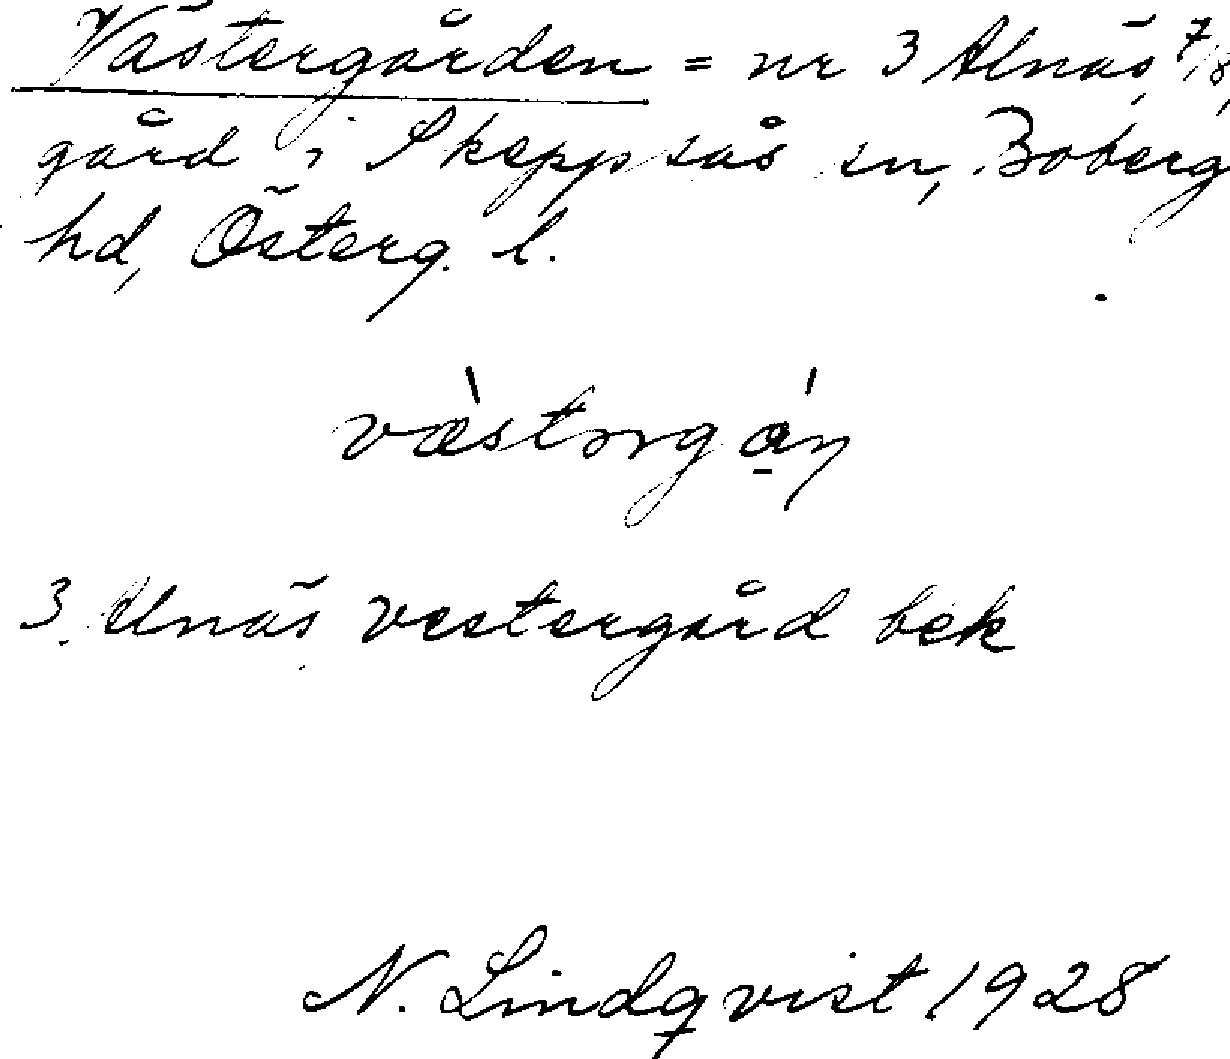 Västergården = nr 3 Alnäs, 7/8,
gård i Skeppsås sn, Boberg
hd, Österg. l.
3. Alnäs vestergård bek
N. Lindqvist 1928